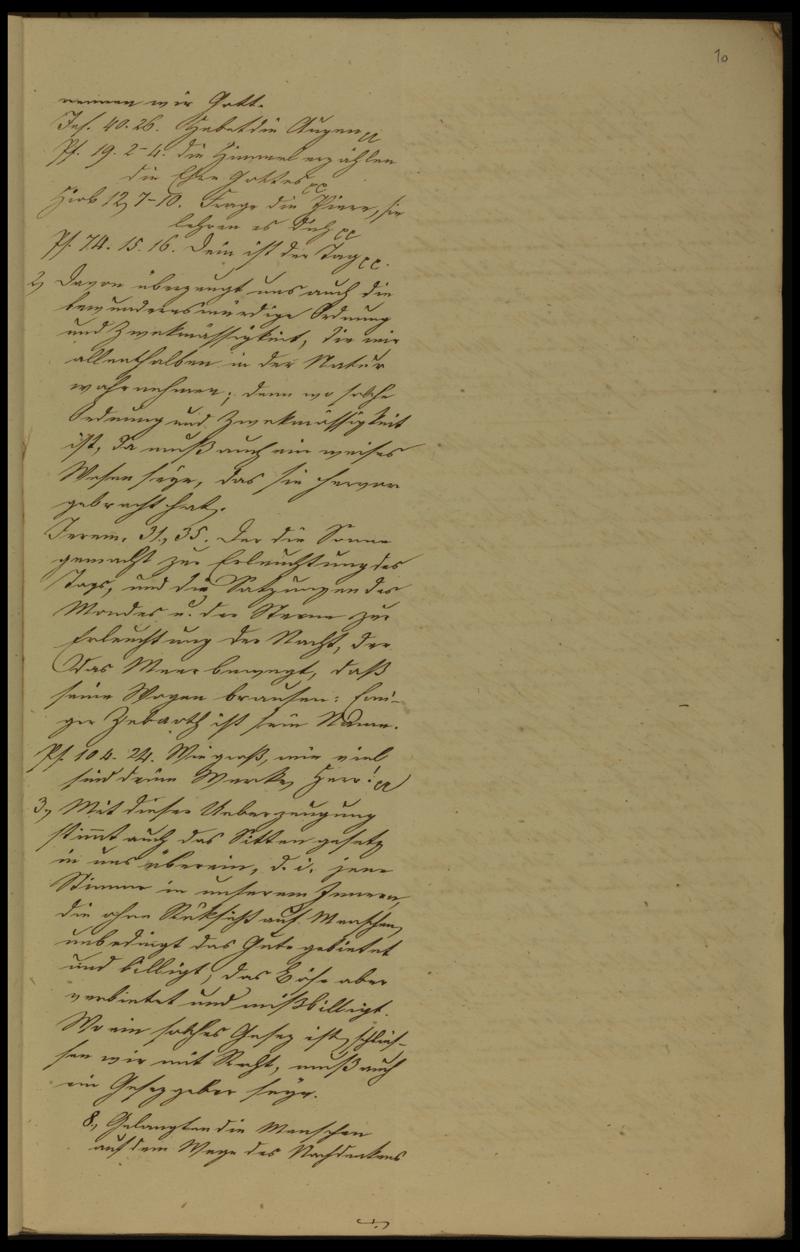 10
nennen wir Gott.
Jes. 40. 26. Hebet die Augen pp
Ps. 19. 2-4. die Himmel erzählen
die Ehre Gottes pp
Hiob 12, 7-10. Frage die Thiere, sie
lehren es Dich pp
Ps. 74. 15. 16. Dein ist der Tag pp.
2, Davon überzeugt uns auch die
bewundernswürdige Ordnung
und Zwekmässigkeit, die wir
allenthalben in der Natur
wahrnehmen; denn wo solche
Ordnung und Zwekmässigkeit
ist, da muß auch ein weises
Wesen seyn, das sie hervor
gebracht hat.
Jerem. 31, 35. Der die Sonne
gemacht zur Erleuchtung des
Tags, und die Satzungen des
Mondes u. der Sterne zur
Erleuchtung der Nacht, der
das Meer bewegt, daß
seine Wogen brausen: Ewi-
ger Zebaoth ist sein Name.
Ps. 104. 24. Wie groß, wie viel
sind deine Werke, Herr! pp
3, Mit dieser Ueberzeugung
stimmt auch das Sittengesetz
in uns überein, d. i. jene
Stimme in unserem Innern,
die ohne Rüksicht auf Menschen,
unbedingt das Gute gebietet
und billigt, das Böse aber
verbietet und mißbilligt.
Wo ein solches Gesez ist, schlies-
sen wir mit Recht, muß auch
ein Gesezgeber seyn.
8, Gelangten die Menschen
auf dem Wege des Nachdenkens